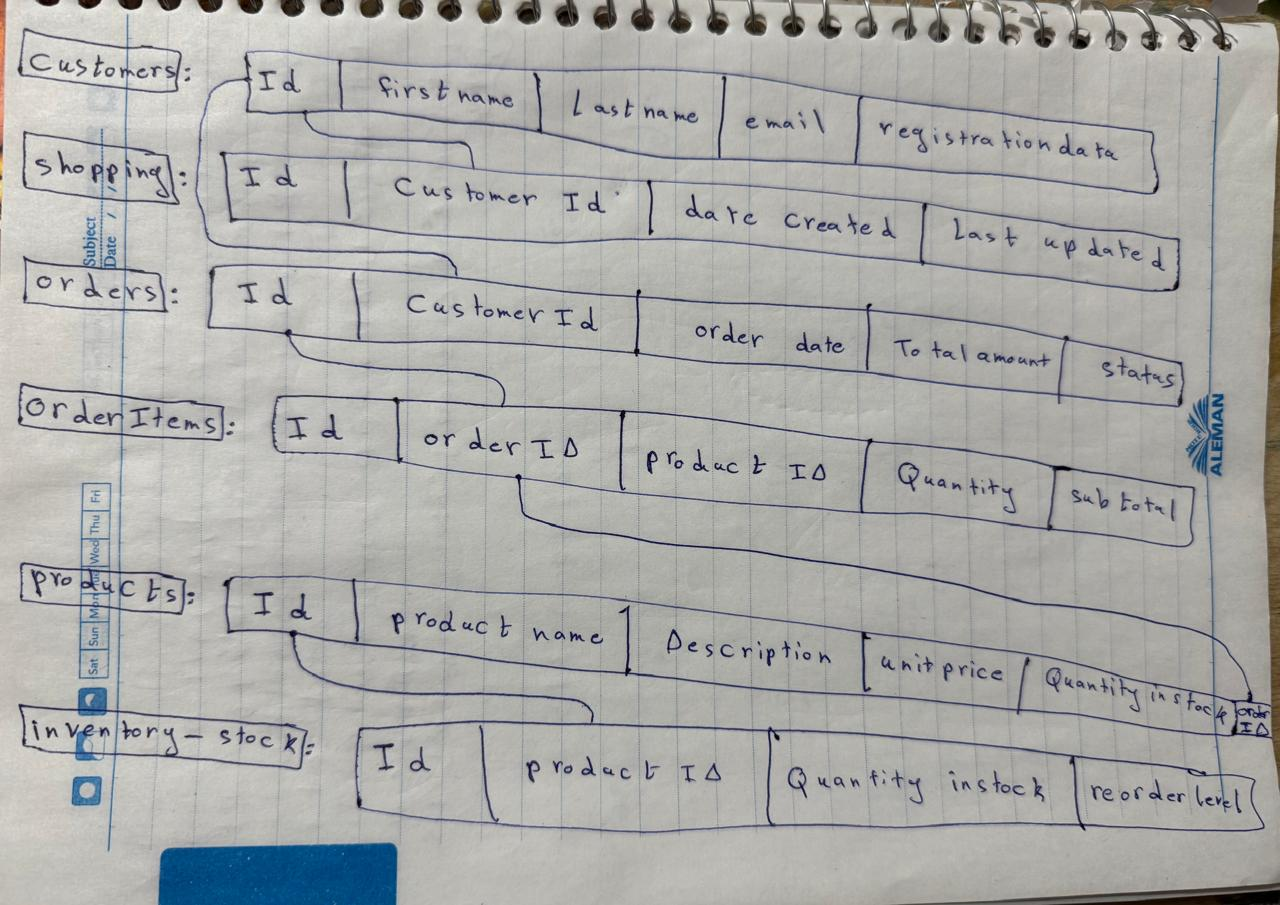 Customers: Id first name Last name email registration data
shopping: Id Customer Id date created Last updated
orders: Id Customer Id order date Total amount status
Order Items: Id order ID product ID Quantity sub total
products: Id product name Description unit price Quantity in stock order ID
inventory-stock: Id product ID Quantity in stock reorder level
Subject
Date / /
Sat Sun Mon Tue Wed Thu Fri
ALEMAN